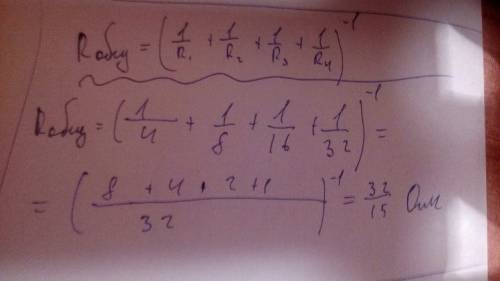 Rобщ = (1/R₁ + 1/R₂ + 1/R₃ + 1/R₄)⁻¹
Rобщ = (1/4 + 1/8 + 1/16 + 1/32)⁻¹ =
= ((8 + 4 + 2 + 1)/32)⁻¹ = 32/15 Ом